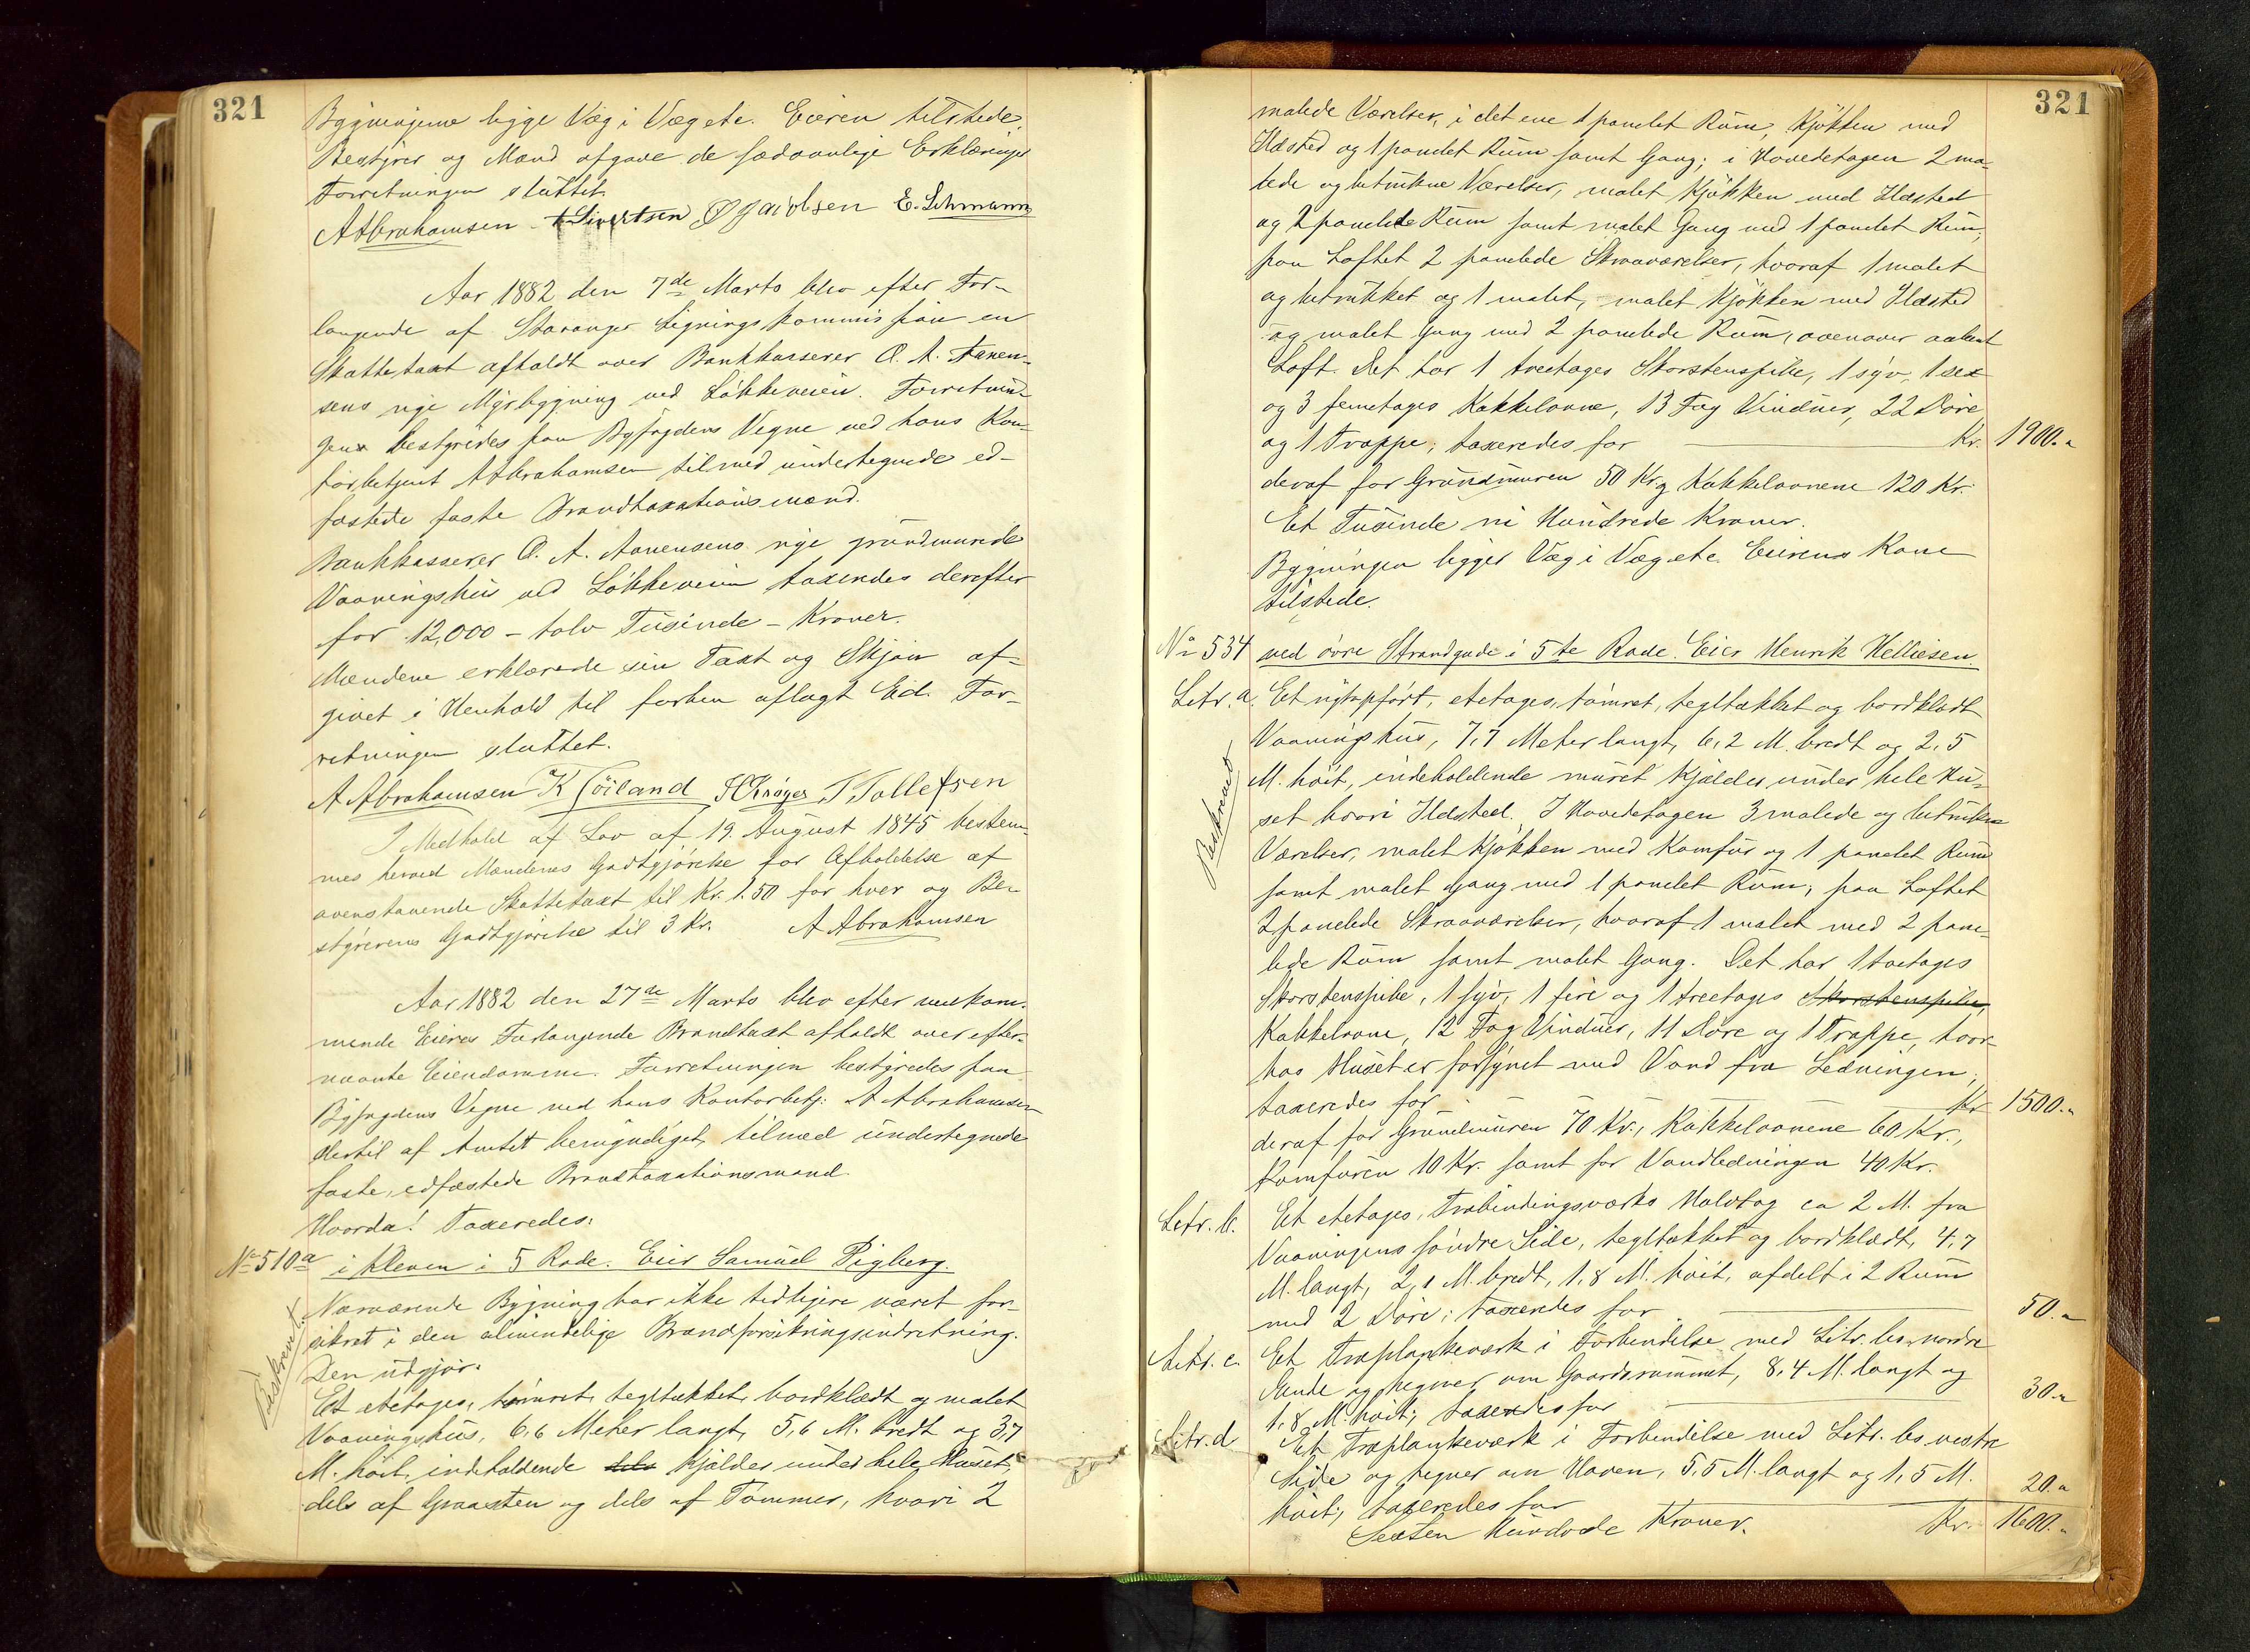 321
Bygningerne ligge Væg i Væg etc. Eieren tilstede.
Bestyrer og Mænd afgave de sædvanlige Erklæringer
Forretningen sluttet.
A Abrahamsen Sivertsen O Jacobsen E. Lehmann
Aar 1882 den 7de Marts blev efter For-
langende af Stavanger Ligningskommission en
Skattetaxt afholdt over Bankkasserer O. A. Aanen-
sens nye Myrbygning ved Løkkeveien. Forretnin-
gen bestyredes paa Byfogdens Vegne ved hans Kon-
torbetjent A Abrahamsen tilmed undertegnede ed-
fæstede faste Brandtaxationsmænd.
Bankkasserer O. A. Aanensens nye grundmurede
Vaaningshus ved Løkkeveien taxeredes derefter
for 12,000 - tolv Tusinde - Kroner.
Mændene erklærede sin Taxt og Skjøn af-
givet i Henhold til forhen aflagt Ed. For-
retningen sluttet.
A Abrahamsen K Töiland H Krøger T Tollefsen
I Medhold af Lov af 19. August 1845 bestem-
mes herved Mændenes Godtgjørelse for Afholdelse af
ovenstaaende Skattetaxt til Kr. 1.50 for hver og Be-
styrerens Godtgjørelse til 3 Kr. A Abrahamsen
Aar 1882 den 27de Marts blev efter vedkom-
mende Eieres Forlangende Brandtaxt afholdt over efter-
nævnte Eiendomme. Forretningen bestyredes paa
Byfogdens Vegne ved hans Kontorbetj: A Abrahamsen
dertil af Amtet bemyndiget, tilmed undertegnede
faste, edfæstede Brandtaxationsmænd.
Hvorda! Taxeredes:
No 510a i Kleven i 5 Rode. Eier Samuel Pigberg.
Beskrevet.
Nærværende Bygning har ikke tidligere været for-
sikret i den almindelige Brandforsikringsindretning.
Den udgjør:
Et etetages, tømret, tegltækket, bordklædt og malet
Vaaningshus, 6,6 Meter langt, 5,6 M. bredt og 3,7
M. høit, indeholdende dels Kjælder under hele Huset,
dels af Graasten og dels af Tømmer, hvori 2
321
malede Værelser, i det ene 1 panelet Rum, Kjøkken med
Ildsted og 1 panelet Rum samt Gang; i Hovedetagen 2 ma-
lede og betrukne Værelser, malet Kjøkken med Ildsted
og 2 panelede Rum samt malet Gang med 1 panelet Rum,
paa Loftet 2 panelede Skraaværelser, hvoraf 1 malet
og betrukket og 1 malet, malet Kjøkken med Ildsted
og malet Gang med 2 panelede Rum, ovenover aabent
Loft. Det har 1 treetages Skorstenspibe, 1 syv, 1 sex
og 3 femetages Kakkelovne, 13 Fag Vinduer, 22 Døre
og 1 Trappe; taxeredes for Kr. 1900."
deraf for Grundmuren 50 Kr. og Kakkelovnene 120 Kr.
Et Tusinde ni Hundrede Kroner.
Bygningen ligger Væg i Væg etc. Eierens Kone
tilstede.
No 534 ved øvre Strandgade i 5te Rode. Eier Henrik Helliesen.
Beskrevet
Litr. a. Et nyopført, etetages, tømret, tegltækket og bordklædt
Vaaningshus, 7,7 Meter langt, 6,2 M. bredt og 2,5
M. høit, indeholdende muret Kjælder under hele Hu-
set hvori Ildsted. I Hovedetagen 3 malede og betrukne
Værelser, malet Kjøkken med Komfur og 1 panelet Rum
samt malet Gang med 1 panelet Rum; paa Loftet
2 panelede Skraaværelser, hvoraf 1 malet med 2 pane-
lede Rum samt malet Gang. Det har 1 toetages
Skorstenspibe, 1 syv, 1 fire og 1 treetages Skorstenspibe,
Kakkelovne, 12 Fag Vinduer, 11 Døre og 1 Trappe, hvor-
hos Huset er forsynet med Vand fra Ledningen;
taxeredes for Kr 1500."
deraf for Grundmuren 70 Kr., Kakkelovnene 60 Kr.,
Komfuren 10 Kr. samt for Vandledningen 40 Kr.
Litr. b. Et etetages, Træbindingsværks Halvtag ca 2 M. fra
Vaaningens søndre Side, tegltækket og bordklædt, 4,7
M. langt, 2,1 M. bredt, 1,8 M. høit, afdelt i 2 Rum
med 2 Døre; taxeredes for 50."
Litr. c. Et Træplankeværk i Forbindelse med Litr. bs nordre
Ende og hegner om Gaardsrummet, 8,4 M. langt og
1,8 M. høit; taxeredes for 30."
Litr. d Et Træplankeværk i Forbindelse med Litr. bs vestre
Side og hegner om Haven, 5,5 M. langt og 1,5 M.
høit; taxeredes for 20."
Sexten Hundrede Kroner. Kr. 1600."